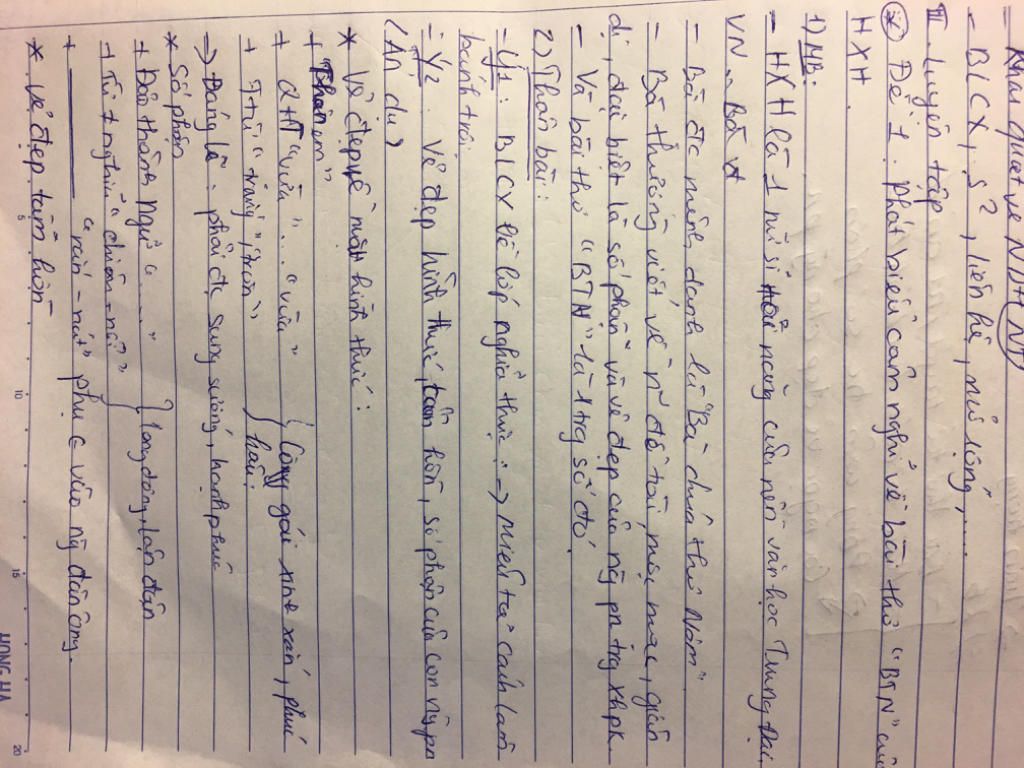 - Khái quát về ND+NT
- BLCX, S?, liên hệ, mở rộng,....
II. Luyện tập
* Đề 1: Phát biểu cảm nghĩ về bài thơ "BTN" của
HXH.
1) MB:
- HXH là 1 nữ sĩ nổi của nền văn học Trung Đại
VN. Bà
- Bà đc mệnh danh là "Bà chúa thơ Nôm"
- Bà thường viết về n đề tài mộc mạc, giản
dị, đặc biệt là số phận và vẻ đẹp của ng pn trg xhpk
- Và bài thơ "BTN" là 1 trg số đó.
2) Thân bài:
- Ý1: BLCX từ lớp nghĩa thực: => miêu tả cách làm
bánh trôi
- Ý2: Vẻ đẹp hình thức, tâm hồn, số phận của con ng pn
(Ẩn dụ)
* Vẻ đẹp về mặt hình thức:
+ "Thân em"
+ QHT "vừa"... "vừa" } Cô gái xinh xắn, phúc
+ TTừ "trắng", "tròn" } hậu
-> Đáng lẽ: phải đc sung sướng, hạnh phúc
* Số phận
+ Đảo thành ngữ "....." } long đong, lận đận
+ Từ trái nghĩa "chìm - nổi" }
+ "rắn - nát" phụ € vào ng đàn ông.
* Vẻ đẹp tâm hồn
HONG HA
5
10
15
20